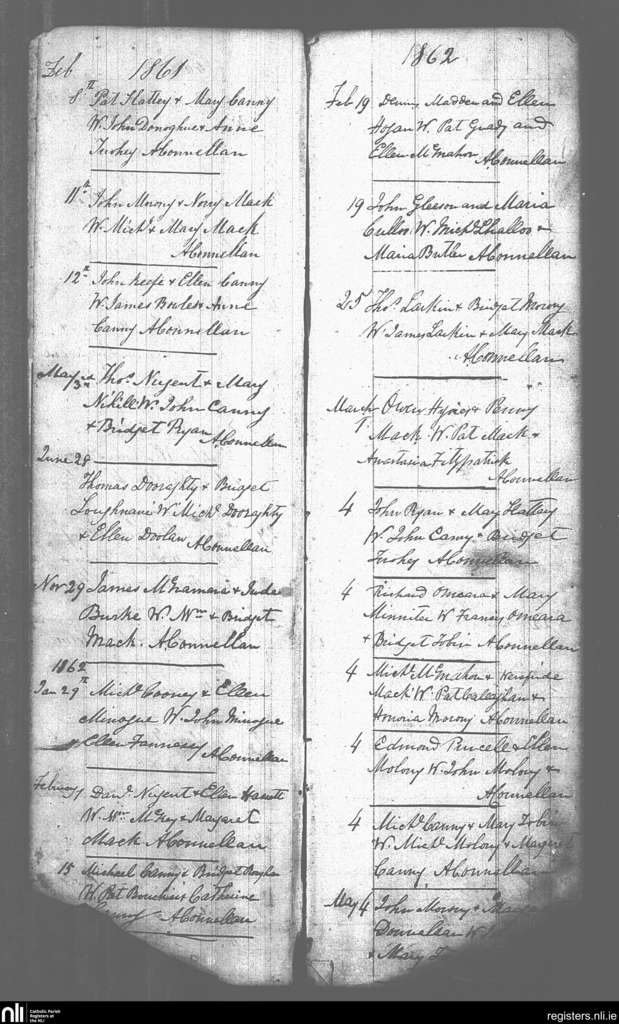 Feb 1861
8th Pat Hattey & Mary Canny
W. John Donoghue & Anne
Tuohey AConnellan
11th John Morony & Nory Mack
W. Michl & Mary Mack
AConnellan
12th John Keefe & Ellen Canny
W James Bowles & Anne
Canny AConnellan
May 3rd Thos Nugent & Mary
Nihill Ws John Canny
& Bridget Ryan AConnellan
June 28
Thomas Dooraghty & Bridget
Loughnane W Michl Dooraghty
& Ellen Doolan AConnellan
Nov 29 James & Jude
Burke W. Wm & Bridget
Mack. AConnellan
1862
Jan 29th Michl Cooney & Ellen
Minogue W. John Minogue
Ellen Fennessy AConnellan
February 1 Danl Nugent & Ellen
W. Wm & Margaret
Mack AConnellan
15 Michael Canny & Bridget
W. Pat Catherine
Canny AConnellan
1862
Feb 19 Denny Madden and Ellen
Hogan W. Pat Grady and
Ellen McMahon AConnellan
19 John Gleeson and Maria
W. Michl &
Maria Butler AConnellan
25 Thos Larkin & Bridget Morony
W James Larkin & Mary Mack
AConnellan
March Owen & Penny
1 Mack W. Pat Mack &
Anastasia Fitzpatrick
AConnellan
4 John Ryan & Mary Hattey
W. John Canny & Bridget
Tuohey AConnellan
4 Richard Omeara & Mary
Minniter W Francy Omeara
& Bridget Tobin AConnellan
4 Michl McMahon &
Mack W. Pat &
Honoria Morony AConnellan
4 Edmond Purcell & Ellen
Molony W. John Molony &
AConnellan
4 Michl Canny & Mary Tobin
W. Michl Molony & Margret
Canny AConnellan
May 4 John Morony & Mary
Donnellan W
& Mary
nli
Catholic Parish
Registers at
the NLI
registers.nli.ie